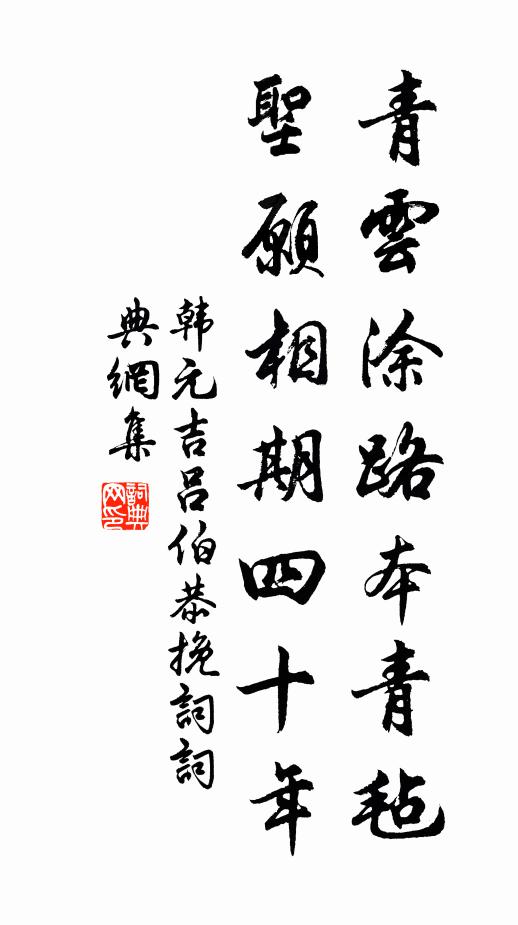 青雲涂路本青毡
聖願相期四十年
韩元吉吕伯恭挽詞詞
典網集
詞典网印